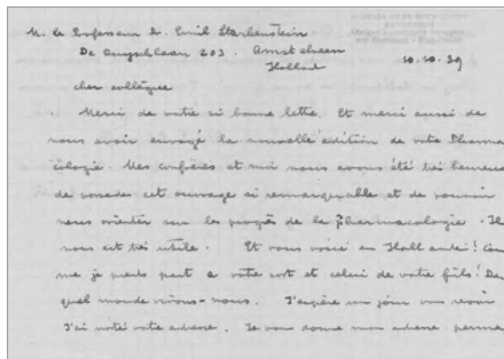 M. le Professeur E. Emil Starkenstein
De Cuyschlaan 203. Amstelveen
Hollade 10.10.39
cher collègue
Merci de votre si bonne lettre. Et merci aussi de
nous avoir envoyé la nouvelle édition de votre Pharma
cologie. Mes confrères et moi nous avons été très heureux
de posseder cet ouvrage si remarquable et de pouvoir
nous orienter sur les progrès de la pharmacologie. Il
nous est très utile. Et vous voici en Hollande! Com
me je prends part a votre sort et celui de votre fils! Dans
quel monde vivons-nous. J'espère un jour vous revoir
J'ai noté votre adresse. Je vous donne mon adresse perma